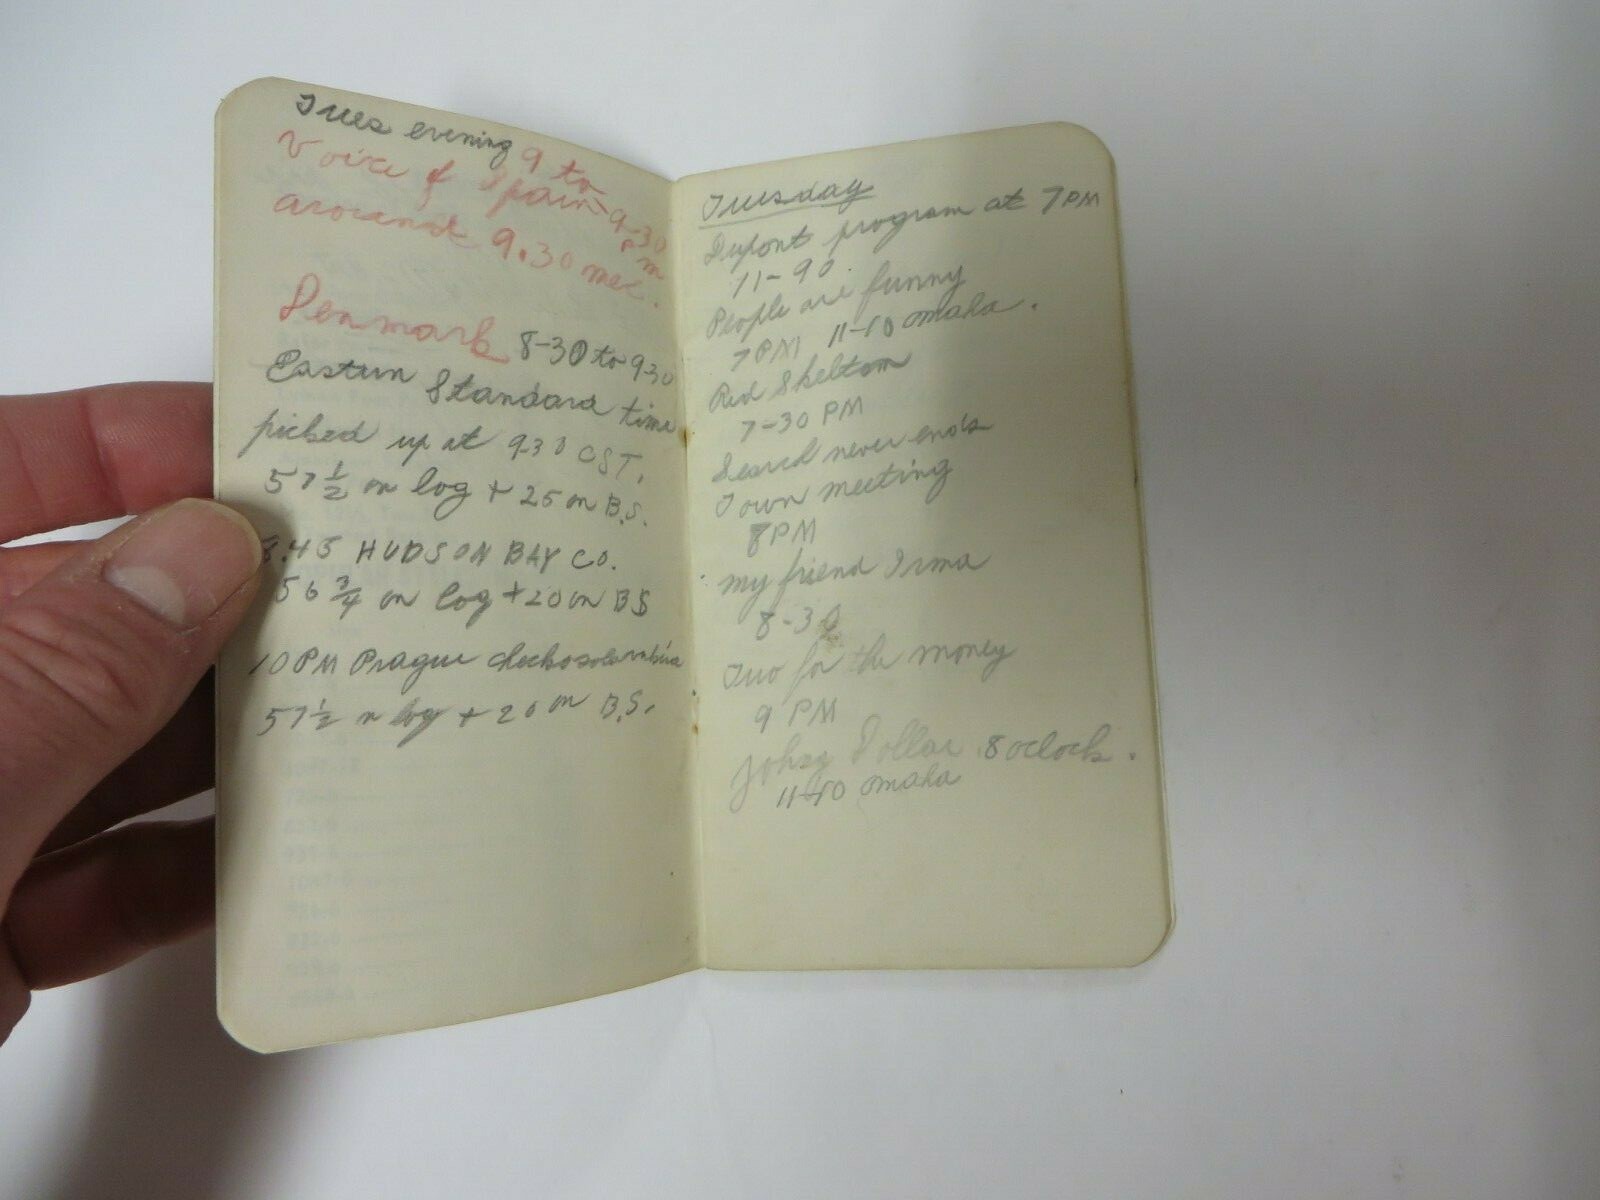 Tues evening 9 to
Voice of Spain 9-30
around 9.30 mec. pm
Denmark 8-30 to 9-30
Eastern Standard time
picked up at 930 CST,
57 1/2 on log + 25 on B.S.
8.45 HUDSON BAY CO.
56 3/4 on log + 20 on BS
10 PM Prague
57 1/2 n log + 20 on B.S.
Tuesday
Dupont program at 7PM
11-90.
People are funny
7PM 11-10 omaha.
Red Skeltom
7-30 PM
Search never ends
Town meeting
8PM
my friend Irma
8-30
Two for the money
9 PM
Johny Dollar 8 oclock.
11-10 omaha